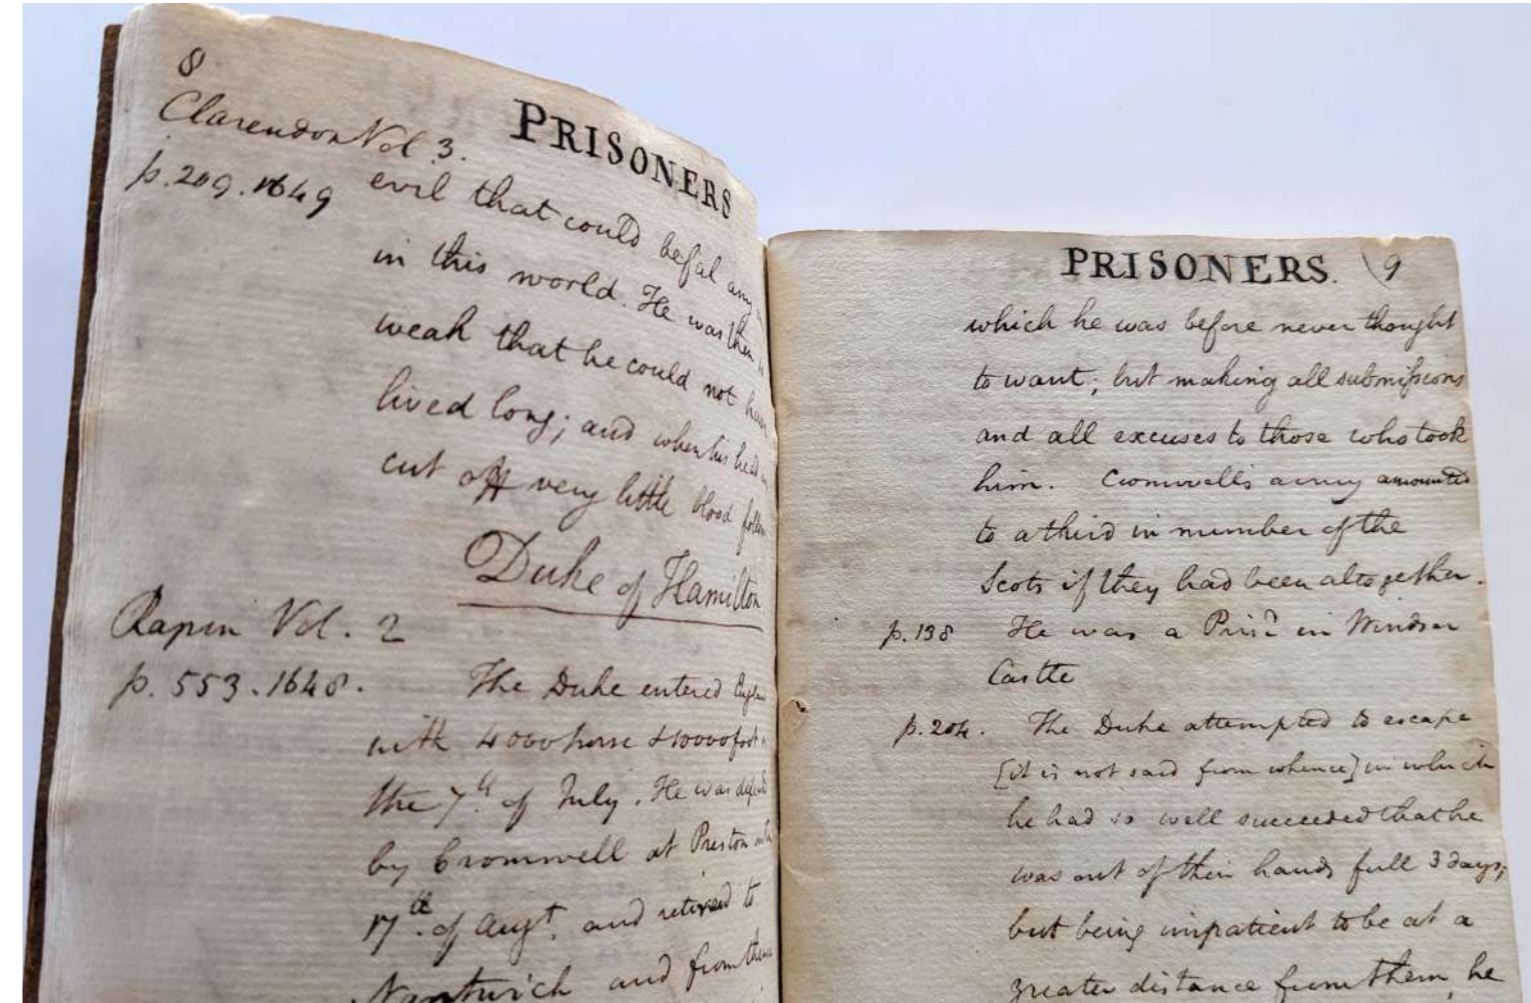 8
PRISONERS
Clarendon Vol 3.
p. 209. 1649
evil that could befal any
in this world. He was then
weak that he could not
lived long; and when his head
cut off very little blood
Duke of Hamilton
Rapin Vol. 2
p. 553. 1648.
The Duke entered
with 4000 horse & 10000 foot
the 7th. of July. He was
by Cromwell at Preston
17th. of Augt. and retired to
Nantwich and from
PRISONERS. 9
which he was before never thought
to want; but making all submissions
and all excuses to those who took
him. Cromwell's army amounted
to a third in number of the
Scots if they had been altogether.
p. 138 He was a Prisr in Windsor
Castle
p. 204. The Duke attempted to escape
[it is not said from whence] in which
he had so well succeeded that he
was out of their hands full 3 days;
but being impatient to be at a
greater distance from them, he